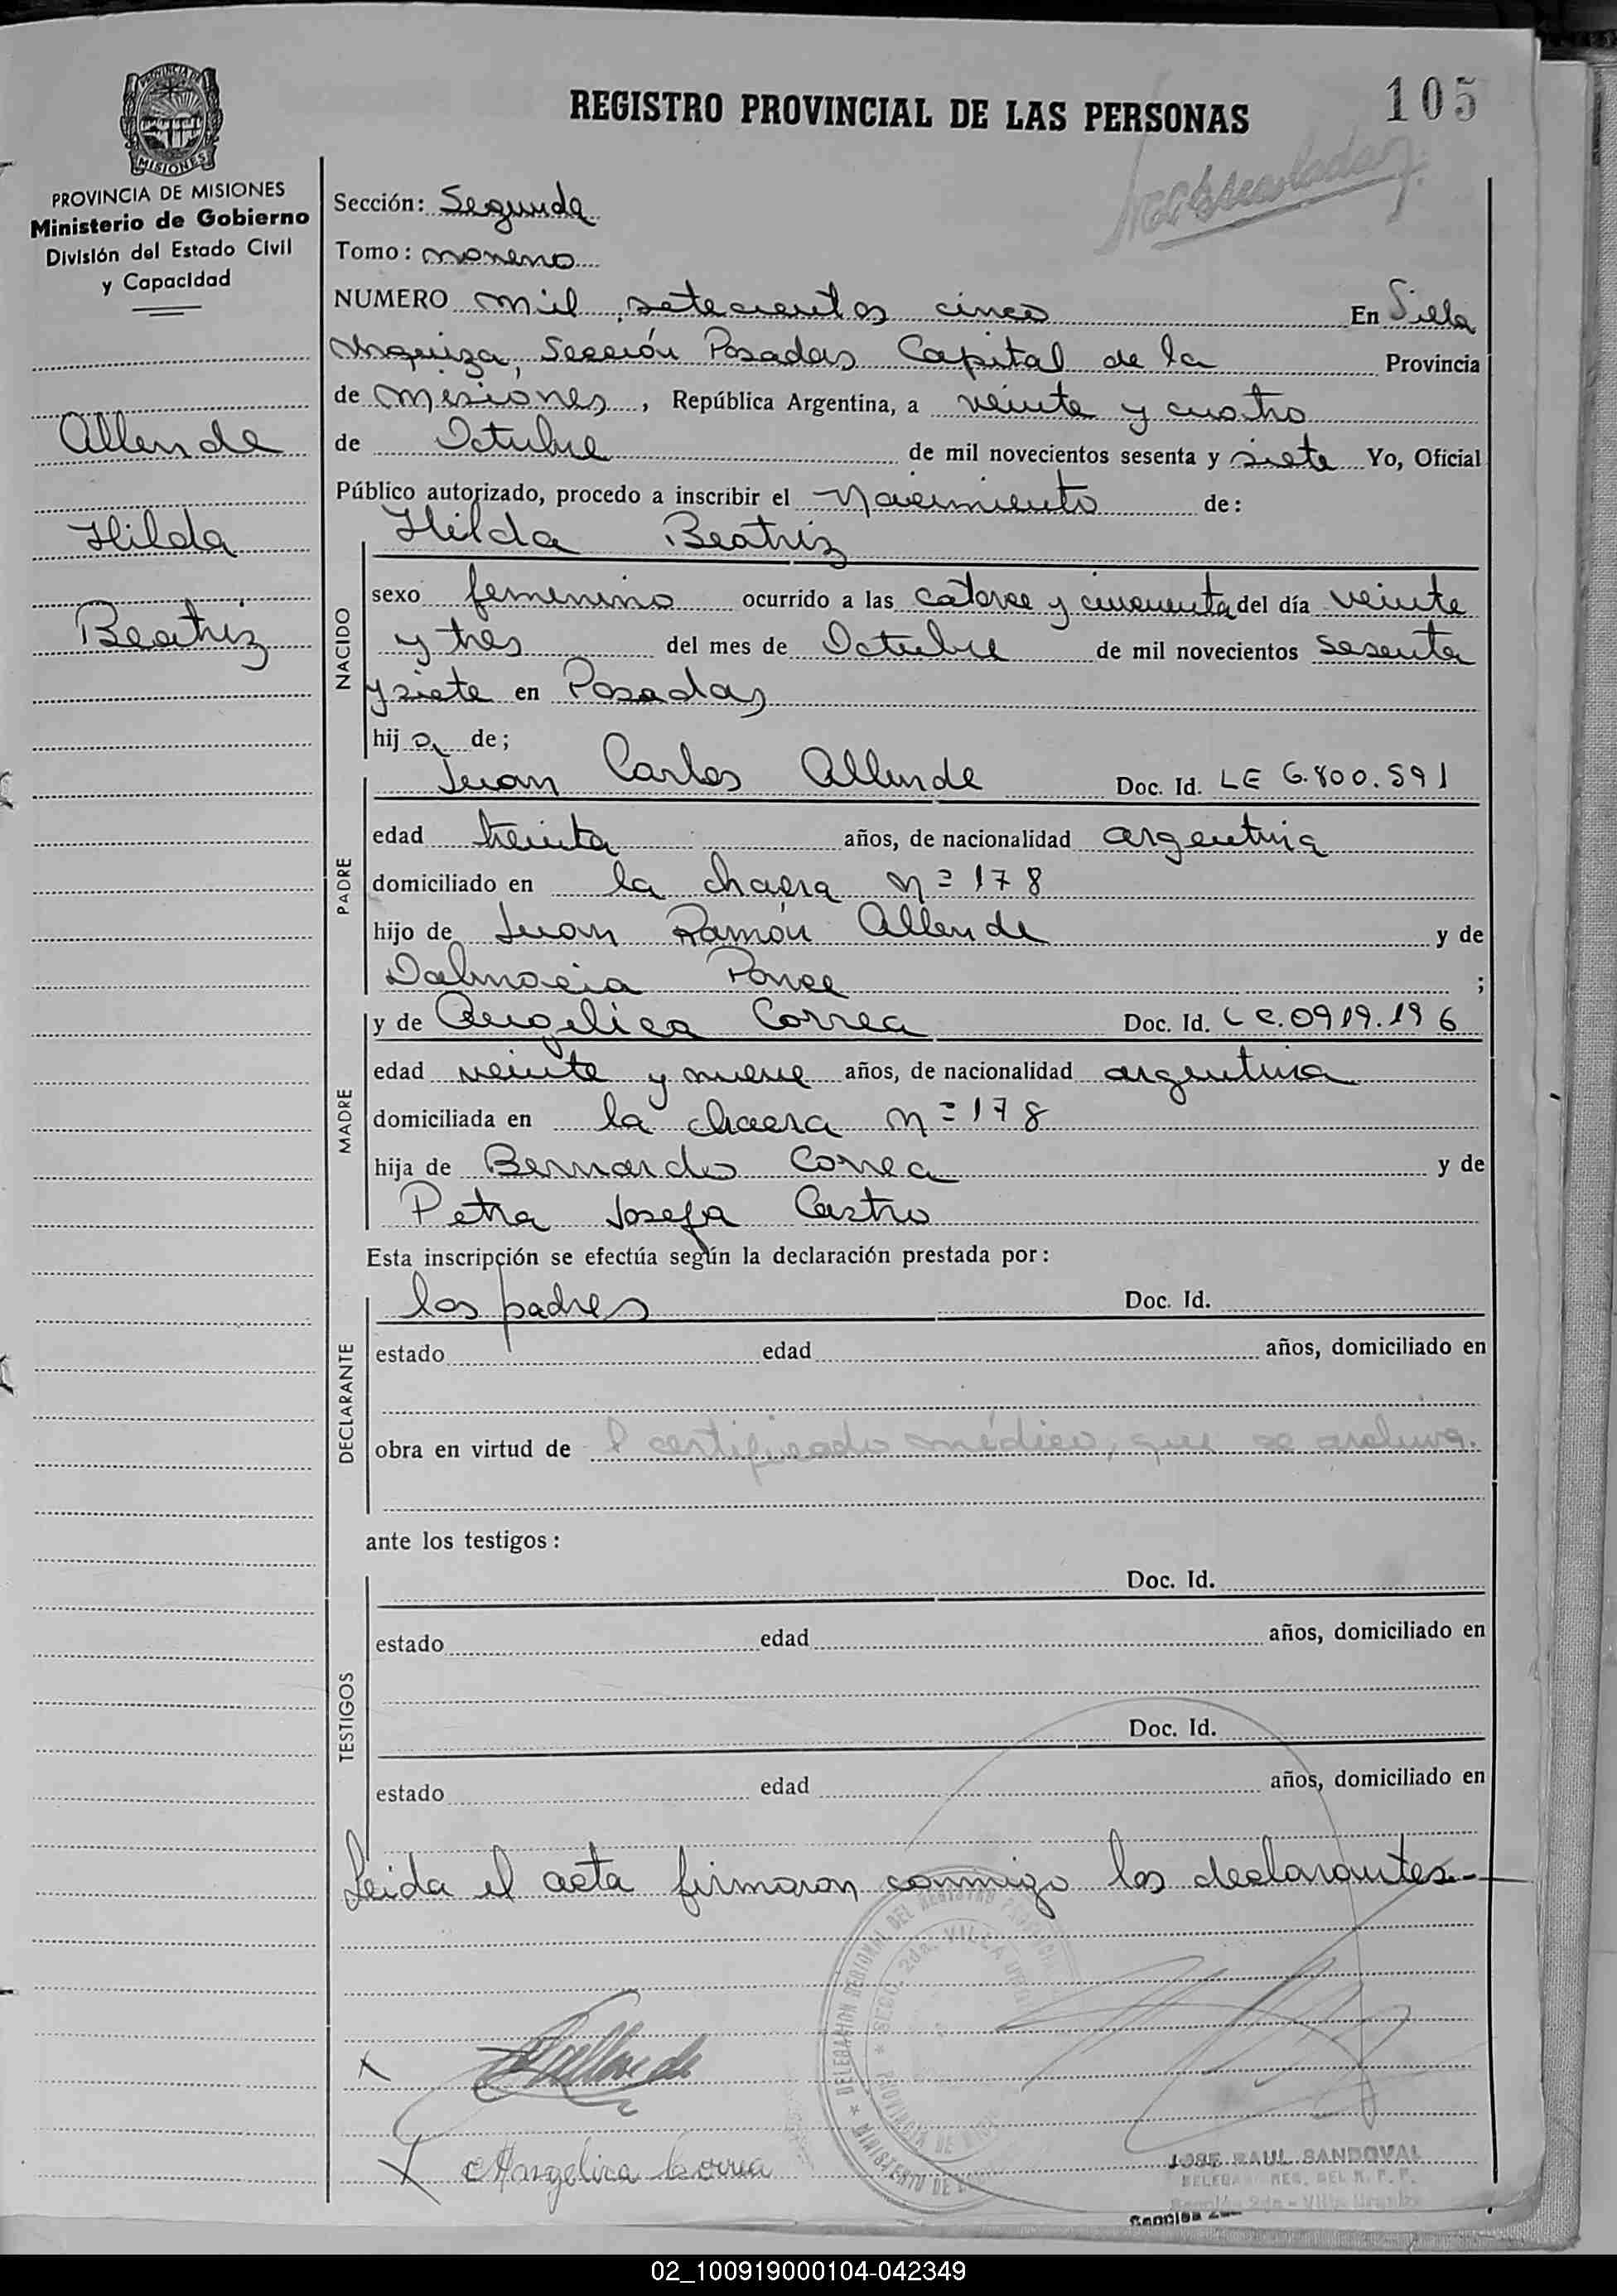 105
REGISTRO PROVINCIAL DE LAS PERSONAS
MISIONES
PROVINCIA DE MISIONES
Ministerio de Gobierno
División del Estado Civil
y Capacidad
Allende
Hilda
Beatriz
Sección: Segunda
Tomo: noveno
NUMERO mil setecientos cinco En Villa
Urquiza, Sección Posadas Capital de la Provincia
de Misiones, República Argentina, a veinte y cuatro
de Octubre de mil novecientos sesenta y siete Yo, Oficial
Público autorizado, procedo a inscribir el Nacimiento de:
Hilda Beatriz
NACIDO
sexo femenino ocurrido a las catorce y cincuenta del día veinte
y tres del mes de Octubre de mil novecientos sesenta
y siete en Posadas
hija de;
PADRE
Juan Carlos Allende Doc. Id. LE 6.800.591
edad treinta años, de nacionalidad argentina
domiciliado en la chacra nº 178
hijo de Juan Ramón Allende y de
Dalmacia Ponce ;
MADRE
y de Angelica Correa Doc. Id. LC.0919.196
edad veinte y nueve años, de nacionalidad argentina
domiciliada en la chacra nº 178
hija de Bernardo Correa y de
Petra Josefa Castro
Esta inscripción se efectúa según la declaración prestada por:
DECLARANTE
los padres Doc. Id.
estado edad años, domiciliado en
obra en virtud de l certificado médico, que se archiva.
ante los testigos:
TESTIGOS
Doc. Id.
estado edad años, domiciliado en
Doc. Id.
estado edad años, domiciliado en
Leida el acta firmaron conmigo los declarantes.-
DELEGACION REGIONAL DEL REGISTRO
SECC. 2da. VILLA
PROVINCIA DE
MINISTERIO DE
X Allende
X Angelica Correa
JOSE RAUL SANDOVAL
Sección 2da - Villa Urquiza
02_100919000104-042349